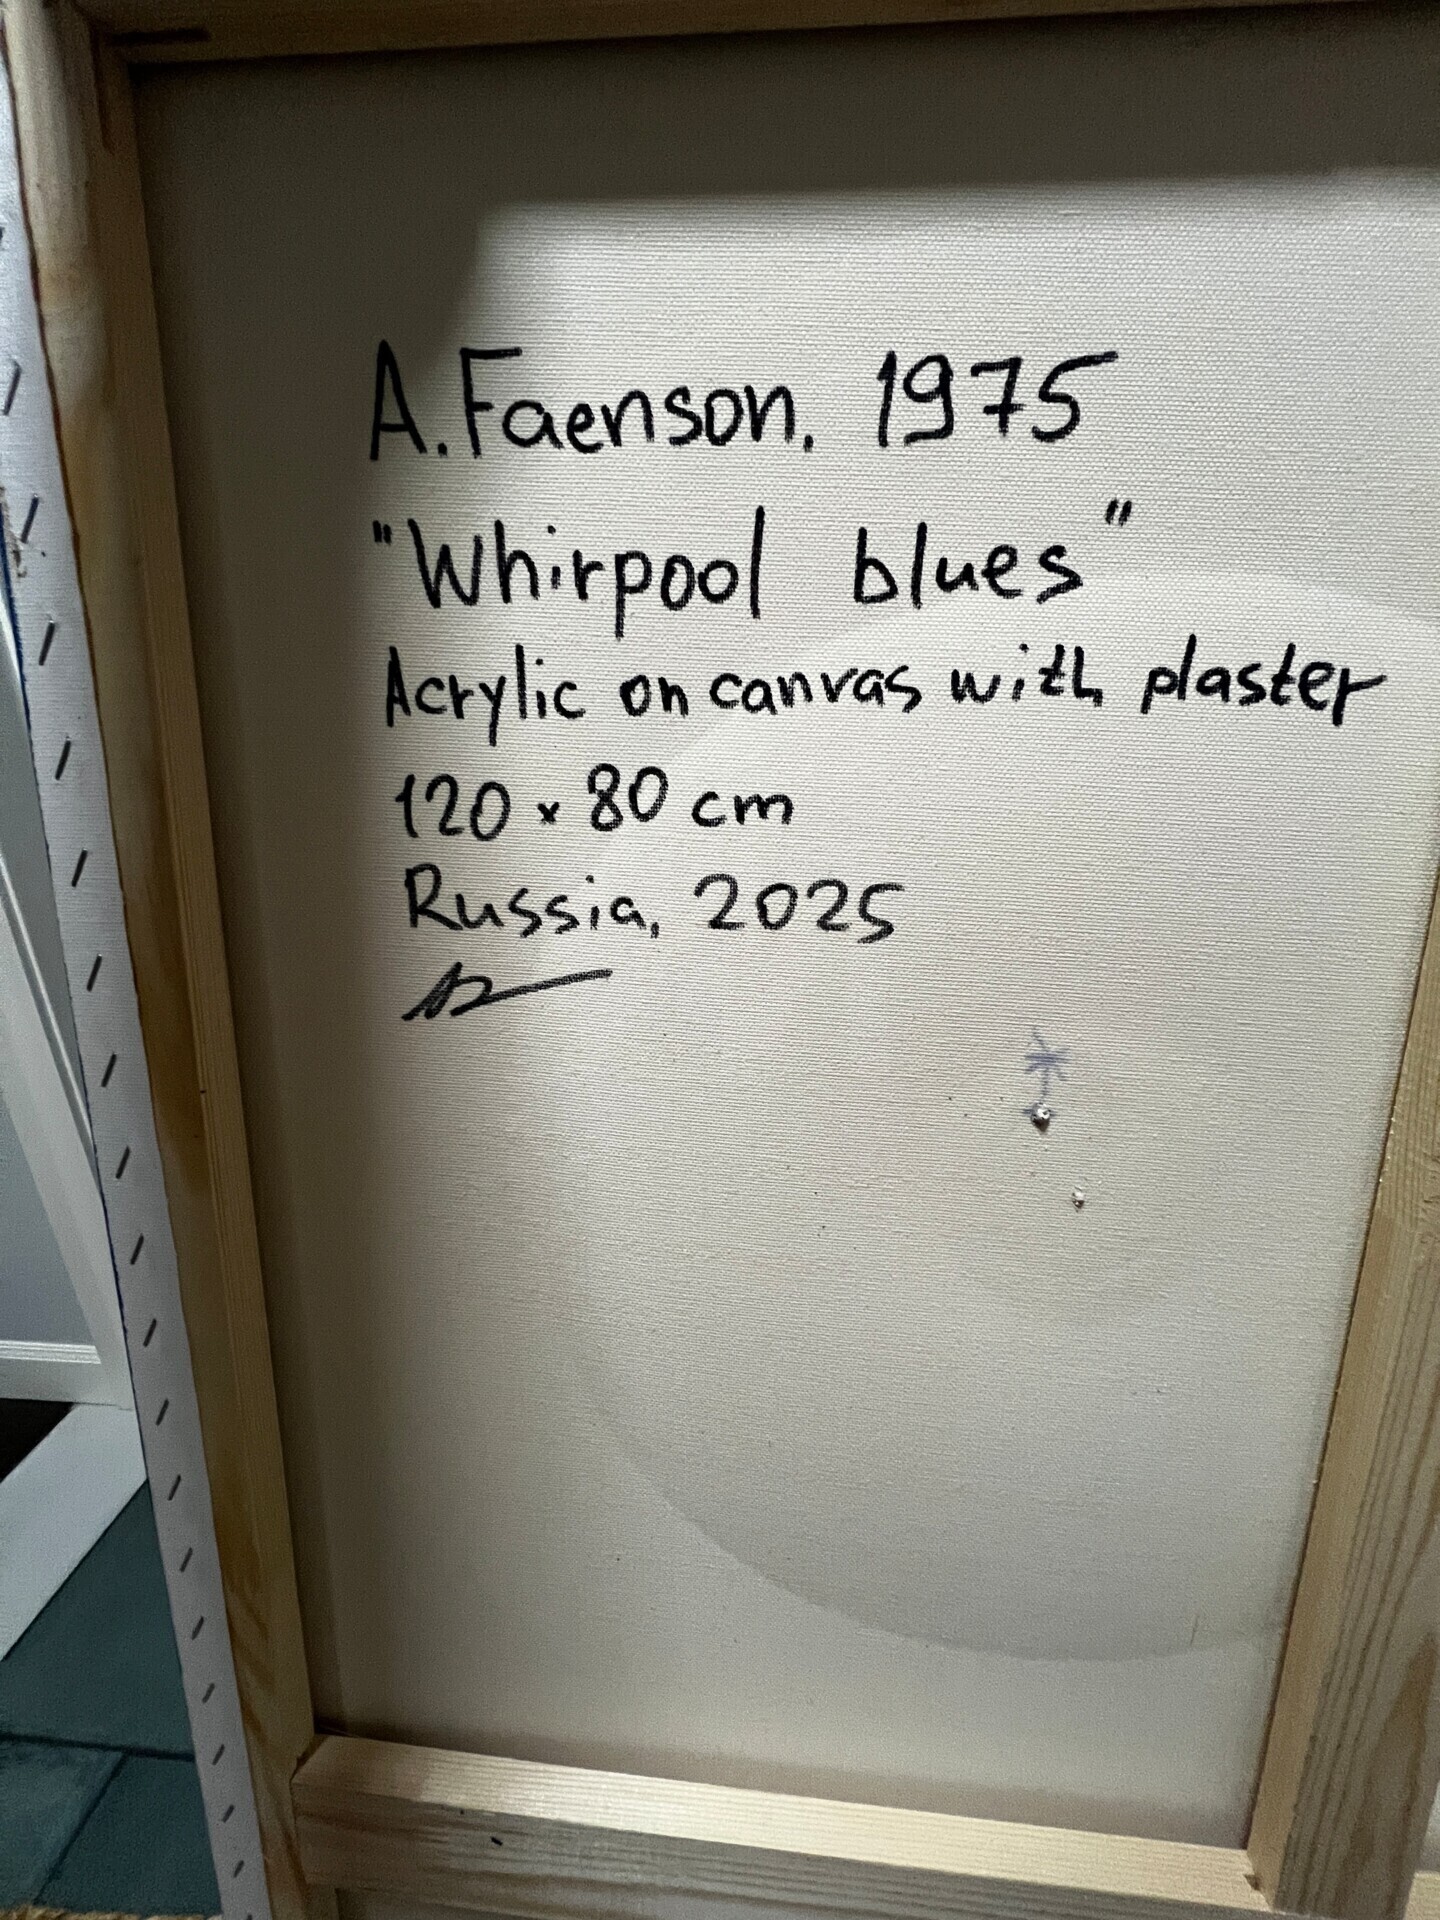 A. Faenson. 1975
"Whirpool blues"
Acrylic on canvas with plaster
120 x 80 cm
Russia, 2025